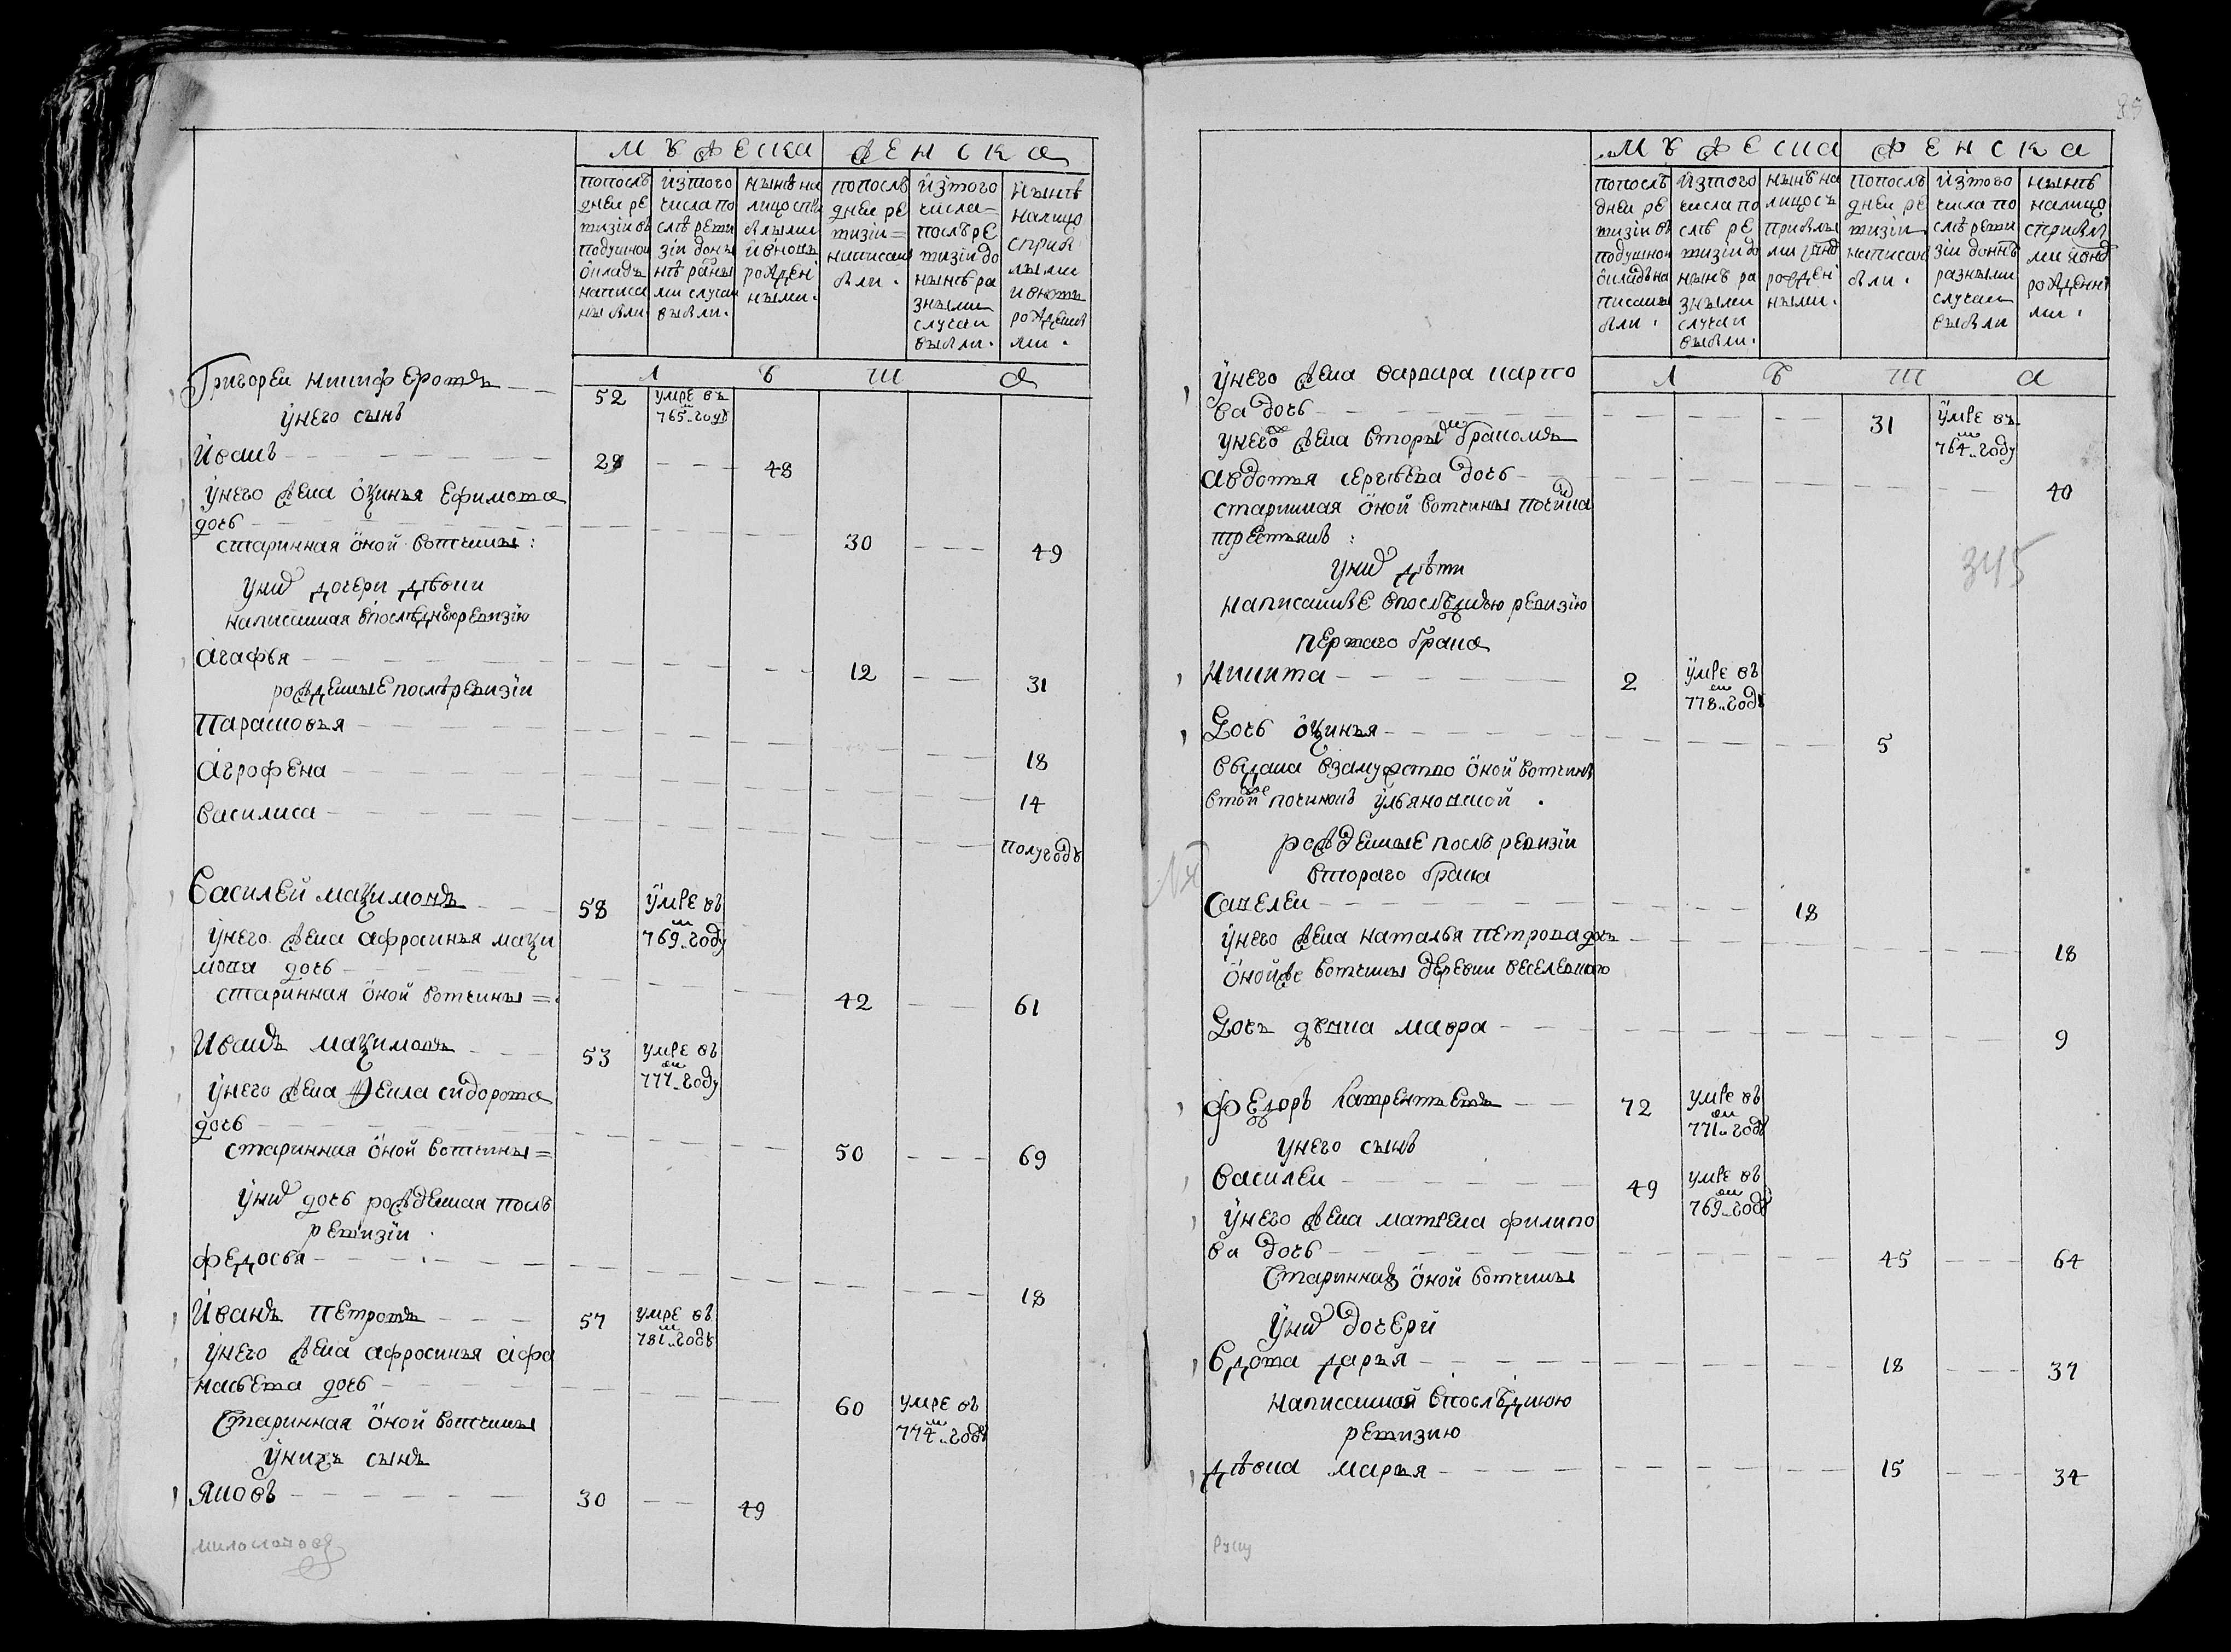 мужеска женска
попослѣ дней ревизіи въ подушной окладъ написаны были
изтого числа послѣ ревизіи донынѣ разными случаи выбыли.
нынѣ налицо сприбылыми ивновь рожденными.
попослѣ дней ревизіи написаны были.
изтого числа послѣ ревизіи донынѣ разными случаи выбыли.
нынѣ налицо сприбылыми ивновь рожденными.
лѣта
Григорей никифоровъ 52 умре въ 765м году
унего сынъ
Иванъ 29 48
унего жена аѯинья ефимова
дочь
старинная оной вотчины: 30 49
унихъ дочери девки
написанная впослѣднюю ревизію
агафья 12 31
рожденные послѣ ревизіи
парасковья 18
агрофена 14
василиса полугоду
василей маѯимовъ 58 умре въ 769м году
унего жена афросинья макси
мова дочь
старинная оной вотчины 42 61
Иванъ маѯимовъ 53 умре въ 777м году
унего жена фекла сидорова
дочь
старинная оной вотчины 50 69
унихъ дочь рожденная послѣ
ревизіи.
федосья 18
Иванъ петровъ 57 умре въ 781м году
унего жена афросинья афа
насьева дочь 60 умре въ 774м году
старинная оной вотчины
унихъ сынъ
яковъ 30 49
мужеска женска
попослѣ дней ревизіи въ подушной окладъ написаны были.
изтого числа послѣ ревизіи до нынѣ разными случаи выбыли.
нынѣ на лицо съ прибылыми ивновь рожденіными.
попослѣ дней ревизіи написаны были.
изтого числа послѣ ревизіи донынѣ разными случаи выбыли
нынѣ налицо сприбылыми ивновь рожденными.
лѣта
унего жена варвара карпо
ва дочь 31 умре въ 764м году
унегоже жена вторымъ бракомъ
авдотья сергѣева дочь 40
старинная оной вотчины починка
крестьянъ:
унихъ дѣти
написанные впослѣднюю ревизію
перваго брака
Никита 2 умре въ 778м году
Дочь аѯинья 5
выдана взамужство оной вотчины
втойже починокъ ульяновской.
рожденные послѣ ревизіи
втораго брака
савелей 18
унего жена наталья петрова дочь 18
онойже вотчины деревни веселевкого
Дочь девка мавра 9
345
федоръ лаврентьевъ 72 умре въ 771м году
унего сынъ
василей 49 умре въ 769м году
унего жена матрена филипо
ва дочь 45 64
старинная оной вотчины
унихъ дочери
вдова дарья 18 37
написанной впослѣднюю
ревизию
девка марья 15 34